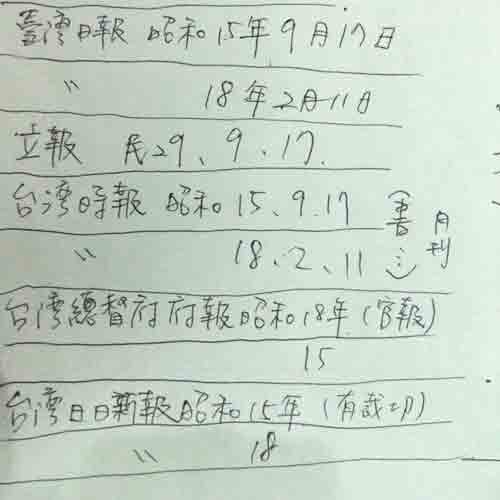 臺灣日報 昭和15年9月17日
〃 18年2月11日
立報 民29、9、17.
台湾時報 昭和15、9、17 (書 月刊
〃 18、2、11
台湾總督府府報昭和18年(官報)
15
台湾日日新報昭和15年(有裁切)
〃 18